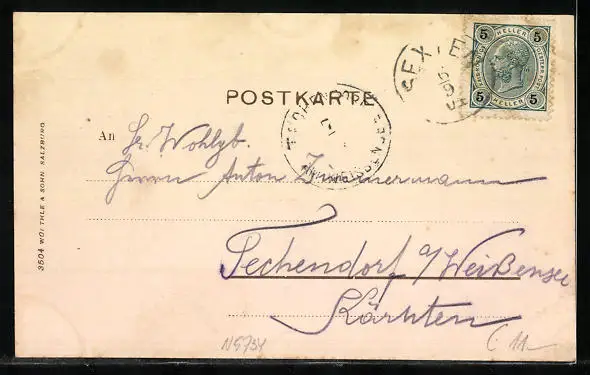 5 HELLER 5
5 HELLER 5
SEXTEN
POSTKARTE
An Sr. Wohlgb.
Herrn Anton Zimmermann
Techendorf a/Weißensee
Kärnten
3504 WÜRTHLE & SOHN SALZBURG
N5734